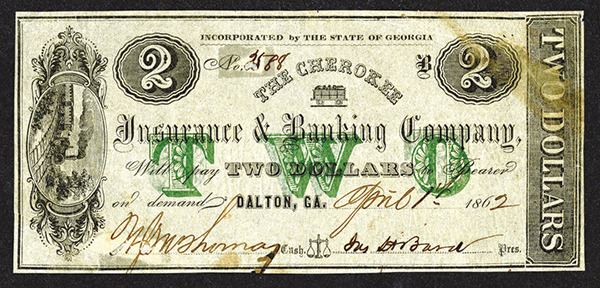 INCORPORATED BY THE STATE OF GEORGIA
2 No. 3588 B 2
THE CHEROKEE
Insurance & Banking Company,
TWO
Will pay TWO DOLLARS to Bearer
on demand DALTON, GA. April 1st 1862
Cash. Pres.
TWO DOLLARS